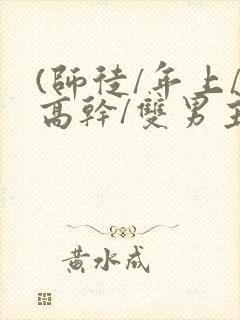 (師徒/年上/
高幹/雙男主
黃水成